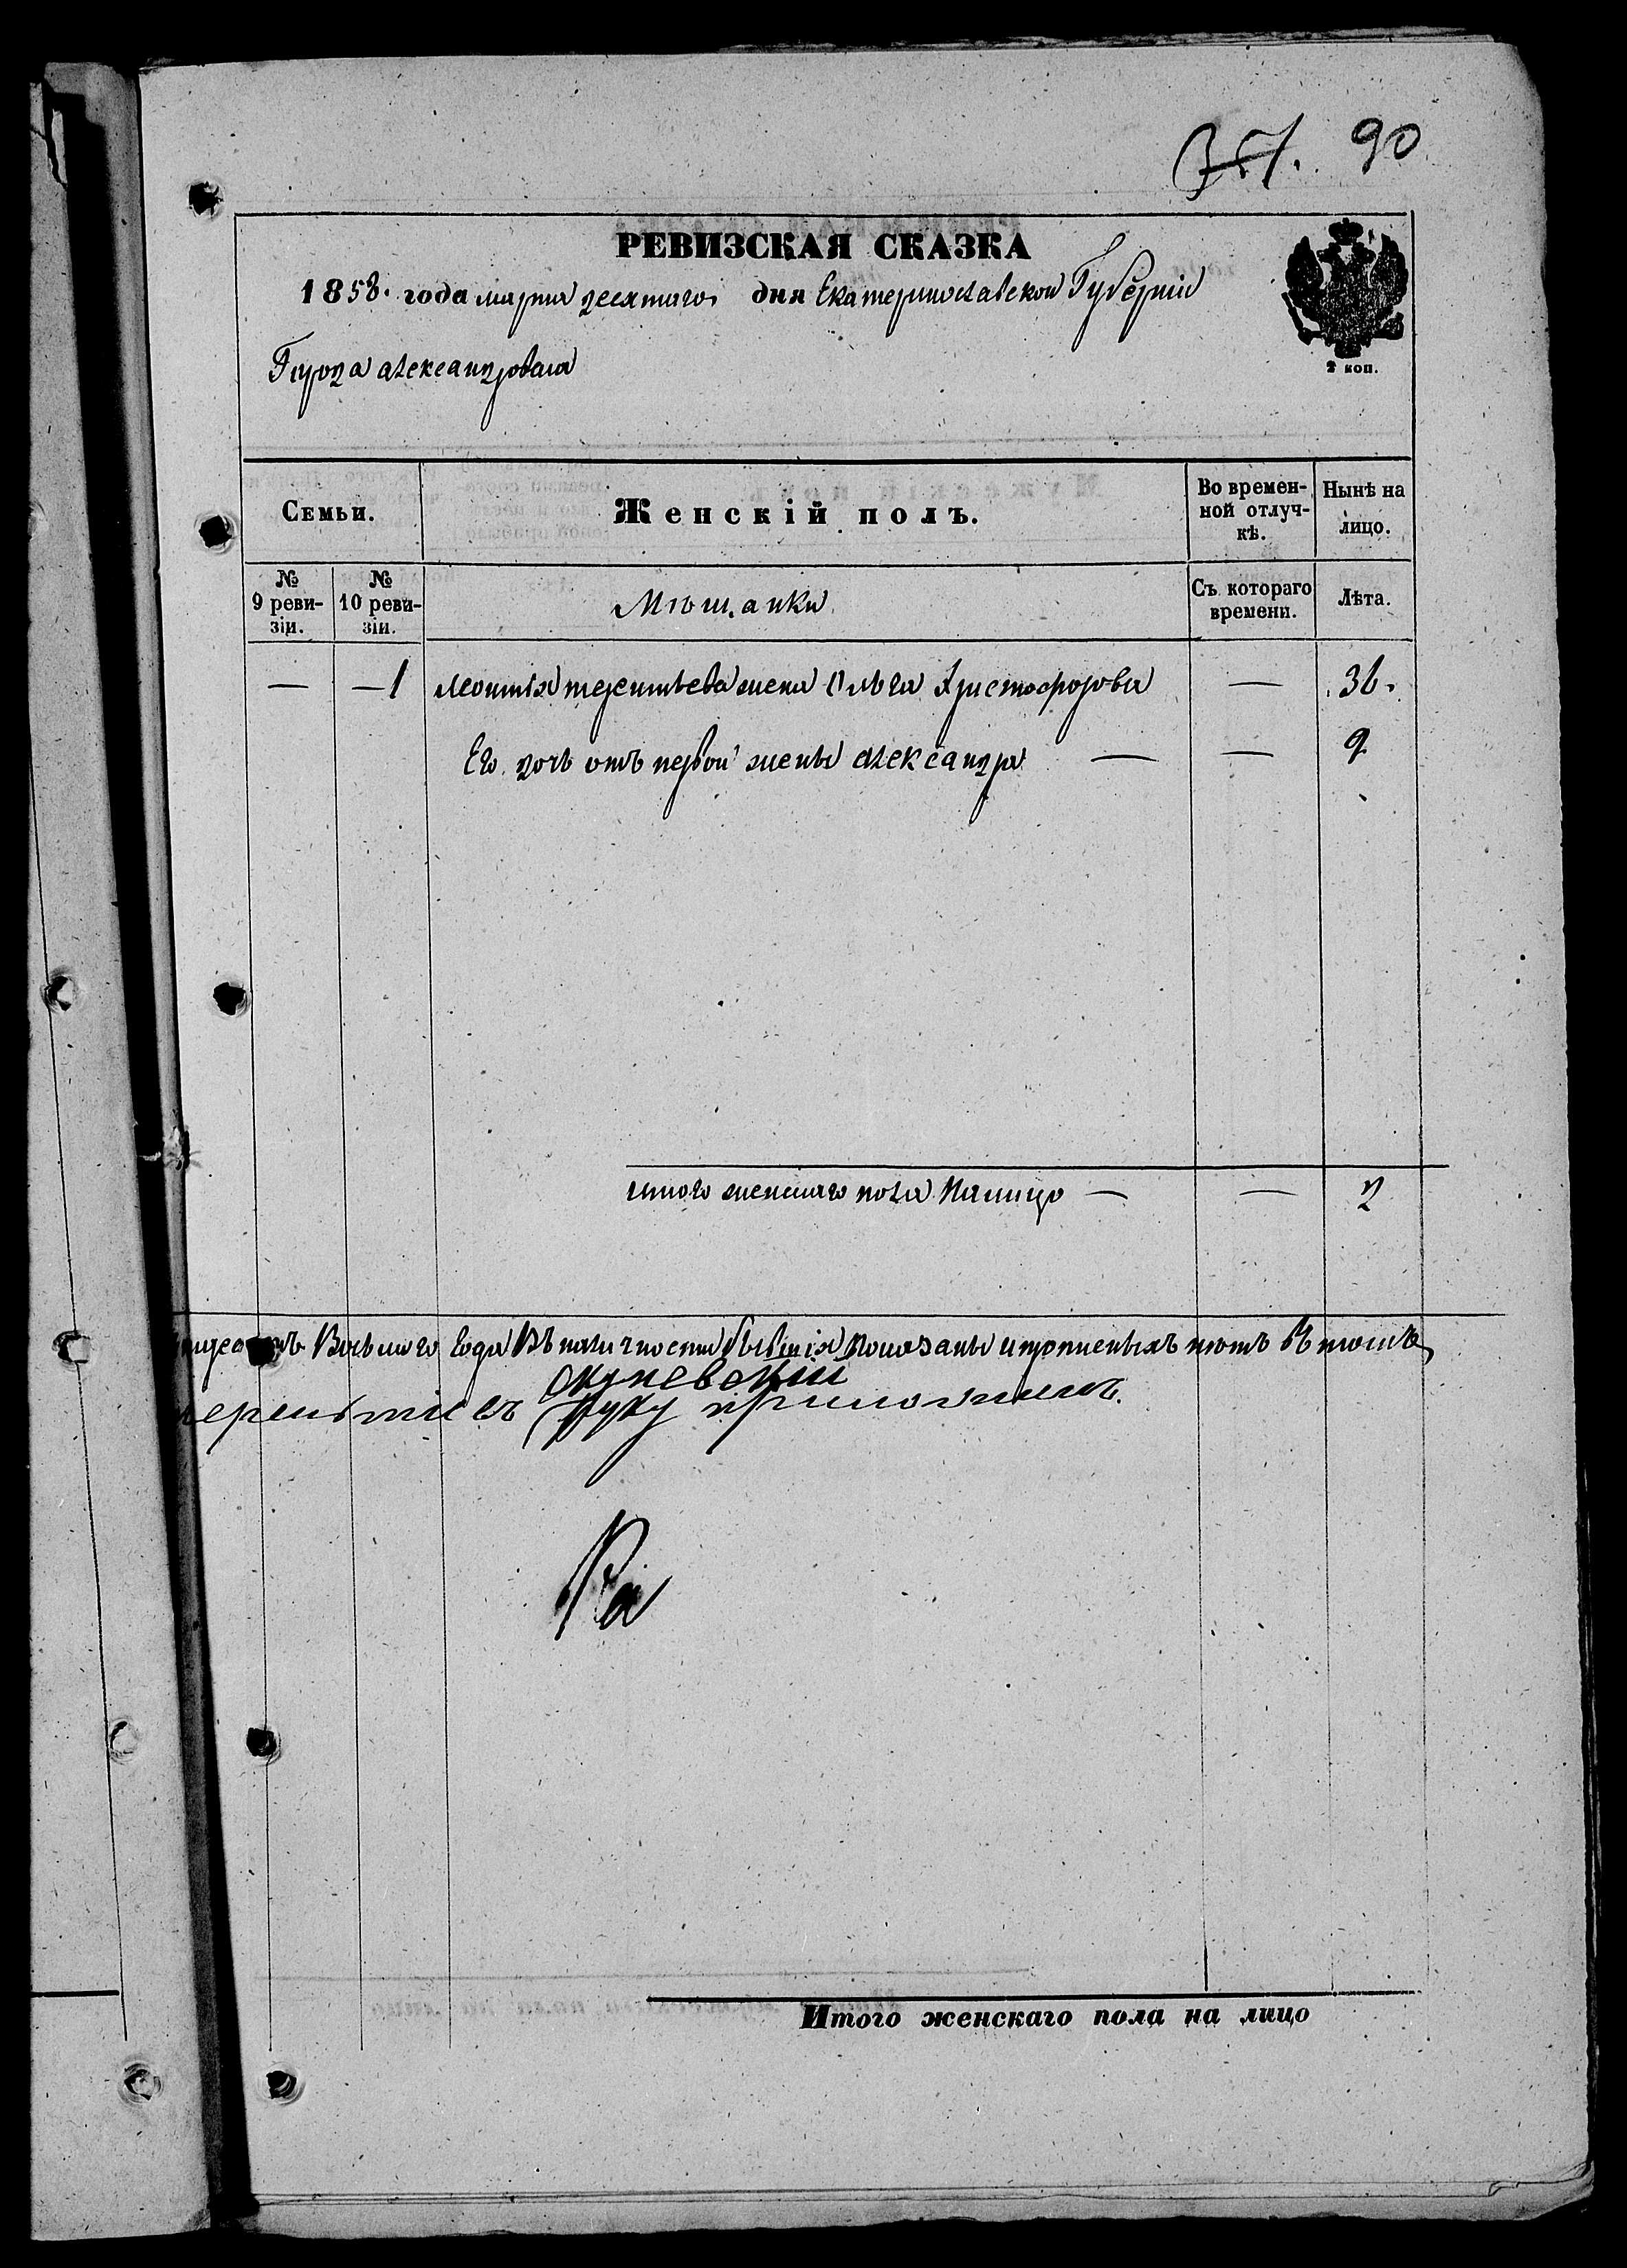 90
РЕВИЗСКАЯ СКАЗКА
1858. года марта десятого дня Екатеринославской Губерніи
Города Александровска
2 коп.
Семьи.
Женскій полъ.
Во времен-
ной отлуч-
кѣ.
Нынѣ на
лицо.
№
9 реви-
зіи.
№
10 реви-
зіи.
Мѣщанки
Съ котораго
времени.
Лѣта.
— — 1 Леонтія терентьева жена Ольга Христофорова — 36.
Его дочь отъ первой жены Александра — — 9
итого женскаго пола Налицо — — 2
Восьмаго Года Въ наличности бывшія показаны и прописныхъ нѣтъ въ томъ
руку приложилъ.
Итого женскаго пола на лицо